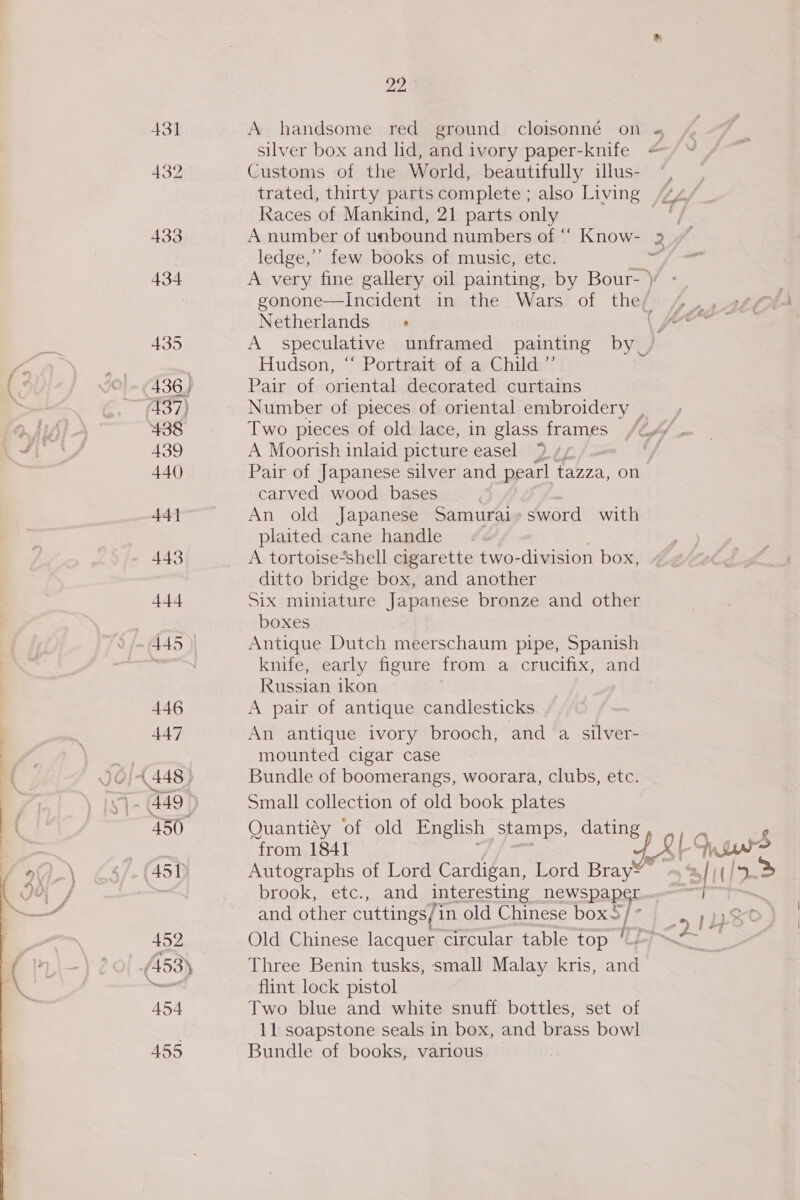 22
431 A handsome red ground cloisonné on
silver box and lid, and ivory paper-knife
432 Customs of the World, beautifully illus-
trated, thirty parts complete ; also Living
Races of Mankind, 21 parts only
433 A number of unbound numbers of “ Know-
ledge,’’ few books of music, etc.
434 A very fine gallery oil painting, by Bour-
gonone—Incident in the Wars of the
Netherlands
435 A speculative unframed painting by
Hudson, “ Portrait of a Child ”
436 Pair of oriental decorated curtains
437 Number of pieces of oriental embroidery
438 Two pieces of old lace, in glass frames
439 A Moorish inlaid picture easel
440 Pair of Japanese silver and pearl tazza, on
carved wood bases
441 An old Japanese Samurai sword with
plaited cane handle
443 A tortoise-shell cigarette two-division box,
ditto bridge box, and another
444 Six miniature Japanese bronze and other
boxes
445 Antique Dutch meerschaum pipe, Spanish
knife, early figure from a crucifix, and
Russian ikon
446 A pair of antique candlesticks
447 An antique ivory brooch, and a silver-
mounted cigar case
448 Bundle of boomerangs, woorara, clubs, etc.
449 Small collection of old book plates
450 Quantiey of old English stamps, dating
from 1841
451 Autographs of Lord Cardigan, Lord Bray-
brook, etc., and interesting newspaper
and other cuttings, in old Chinese box
452 Old Chinese lacquer circular table top
453 Three Benin tusks, small Malay kris, and
flint lock pistol
454 Two blue and white snuff bottles, set of
11 soapstone seals in box, and brass bowl
455 Bundle of books, various